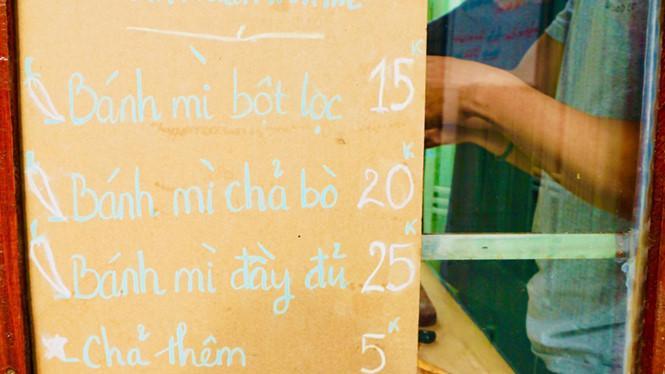 Bánh mì bột lọc 15K
Bánh mì chả bò 20K
Bánh mì đầy đủ 25K
Chả thêm 5K